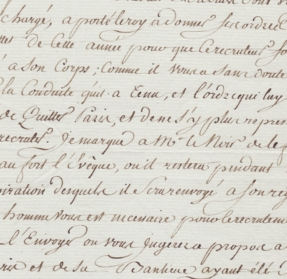 chargé, a porté le roy a donner ses ordres
de Cette année pour que le recruteur so
à son Corps; Comme il vous a sans doute
la Conduite qu'il a tenu, et l'ordre qui luy
de Quitter Paris, et de ne s'y plus repre
recruter. Je marque a Mr. le Noir de le
au fort l'Evêque, où il restera pendant
piration desquels il sera renvoyé a son reg
homme vous est necessaire pour le recrutem
l'Envoyer ou vous Jugerez a propos a
ris et de sa Banlieue ayant été